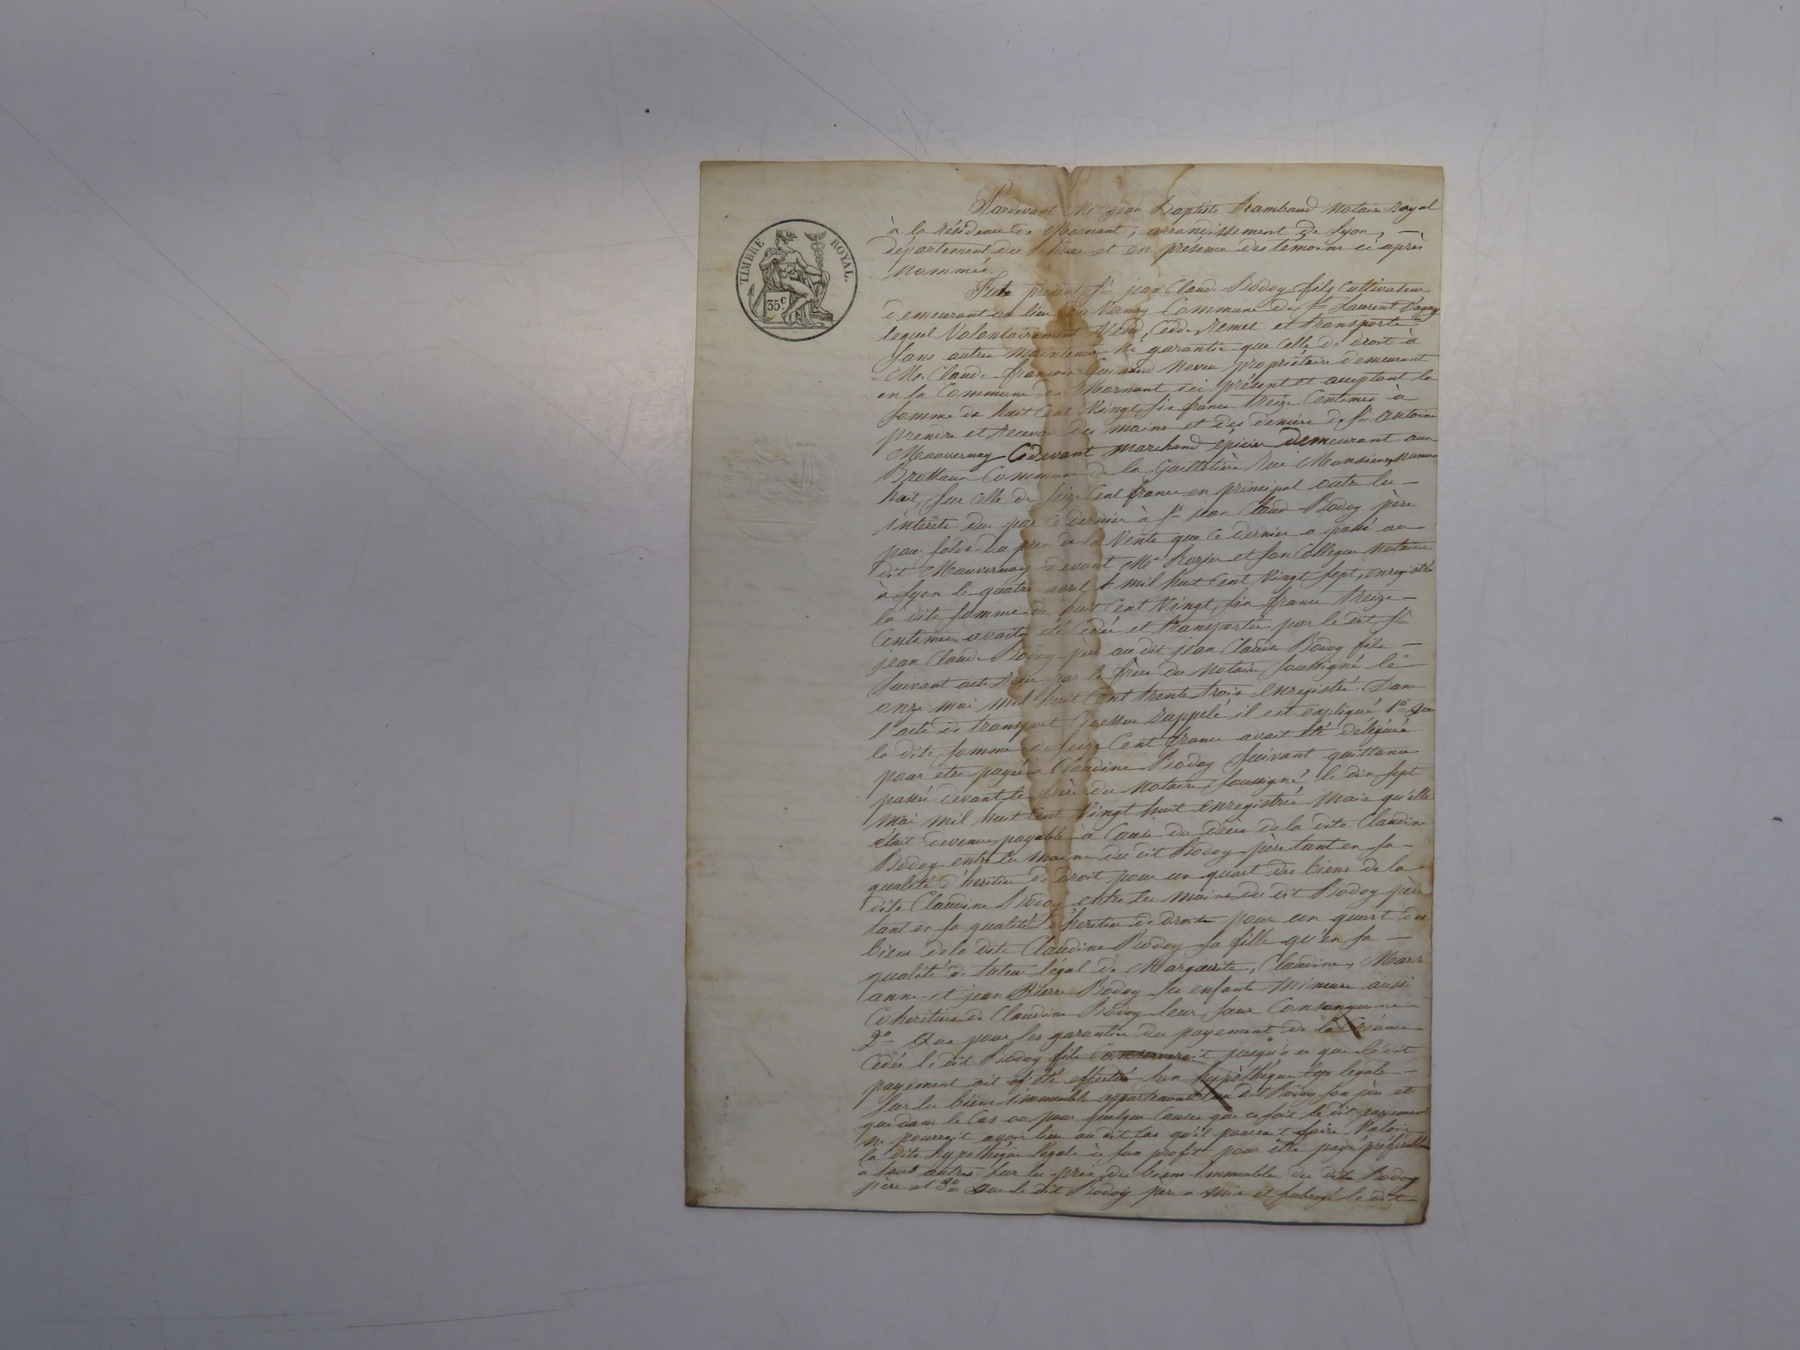 TIMBRE ROYAL.
35c
Pardevant Me jean Baptiste Rambaud Notaire Royal
à la résidence de Mornant, arrondissement de Lyon, —
département du Rhône et en présence des temoins ci après
Nommés.
Fut présent Sr jean Claude Bodoy fils Cultivateur
demeurant au lieu du Vernay Commune de St Laurent d'agny
lequel Volontairement Vend, Cède, Remet et transporte
Sans autre maintenue Ni garantie que Celle de droit à
Mr. Claude françois Guinand Neveu propriétaire demeurant
en la Commune de Mornant ici présent et acceptant la
Somme de huit Cent Vingt six francs treize Centimes à
prendre et recevoir des mains et des deniers de Sr antoine
Mauvernay Cidevant marchand épicier demeurant aux
Brotteaux Commune de la Guillotière Rue Monsieur, Numero
huit, Sur celle de Seize Cent francs en principal outre les —
intérêts due par Ce dernier à Sr jean Claude Bodoy père
pour Solde du prix de la Vente que Ce dernier a passé au
dit Mauvernay devant Me et Son Collègue Notaires
à Lyon le quatre avril mil huit Cent Vingt Sept, enregistré
la dite Somme de huit Cent Vingt six francs treize —
Centimes avait été Cédée et transportée par le dit Sr
jean Claude Bodoy père au dit jean Claude Bodoy fils —
Suivant acte Reçu par le frère du Notaire Soussigné le
onze mai mil huit Cent trente trois enregistré. Dans
l'acte de transport Cidessus Rappelé il est expliqué 1o Que
la dite Somme de Seize Cent francs avait été déléguée
pour être payée à Claudine Bodoy Suivant quittance
passée devant le frère du Notaire Soussigné le dix sept
mai mil huit Cent Vingt huit Enregistrée Mais qu'elle
était devenue payable à Cause du décès de la dite Claudine
Bodoy entre les mains du dit Bodoy père tant en Sa
qualité d'héritier de droit pour un quart des biens de la
dite Claudine Bodoy entre les mains du dit Bodoy père
tant en Sa qualité d'héritier de droit pour un quart des
biens de la dite Claudine Bodoy Sa fille qu'en Sa —
qualité de tuteur légal de Marguerite, Claudine, Marie
anne et jean Pierre Bodoy Ses enfants Mineurs aussi
Cohéritiers de Claudine Bodoy leur Sœur Consanguine
2o Que pour les garanties du payement de la Créance
Cédée le dit Bodoy fils Conserverait jusqu'à ce que le dit
payement ait été effectué Son hypothèque légale —
Sur les biens immeubles appartenant au dit Bodoy Son père et
que dans le Cas où pour quelque Cause que ce soit le dit payement
ne pourrait avoir lieu au dit Cas qu'il pourrait faire Valoir
la dite hypothèque légale à Son profit pour être payé préférablement
à tout autres Sur le prix des biens Immeubles du dit Bodoy
père et 3o Que le dit Bodoy père a mis et Subrogé le dit